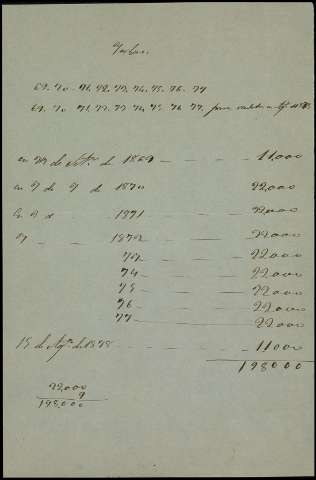 69. 70. 71. 72. 73. 74. 75. 76. 77
69. 70 71. 72. 73 74. 75. 76 77.
de 1869 11,000
de 1870 22,000
1871 22,000
1872 22,000
73 22,000
74 22,000
75 22,000
76 22,000
77 22,000
15 de Agto. de 1878 11,000
198000
22,000
9
198,000